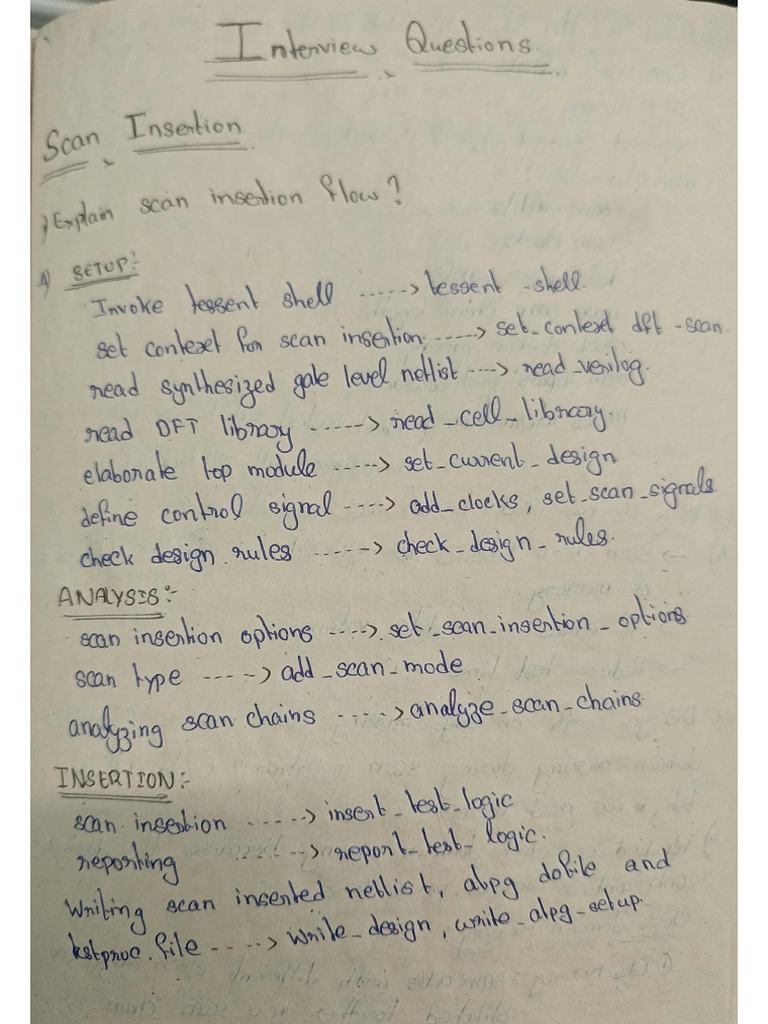 Interview Questions.
Scan Insertion.
1) Explain scan insertion flow?
A) SETUP:-
Invoke tessent shell -----> tessent -shell.
set context for scan insertion ----> set_context dft -scan.
read synthesized gate level netlist ---> read_verilog.
read DFT library -----> read_cell_library.
elaborate top module -----> set_current_design
define control signal ----> add_clocks, set_scan_signals.
check design rules -----> check_design_rules.
ANALYSIS:-
scan insertion options ----> set_scan_insertion_options.
scan type -----> add_scan_mode
analyzing scan chains -----> analyze_scan_chains.
INSERTION:-
scan insertion -----> insert_test_logic
reporting -----> report_test_logic.
Writing scan inserted netlist, atpg dofile and
testproc.file -----> write_design, write_atpg_setup.